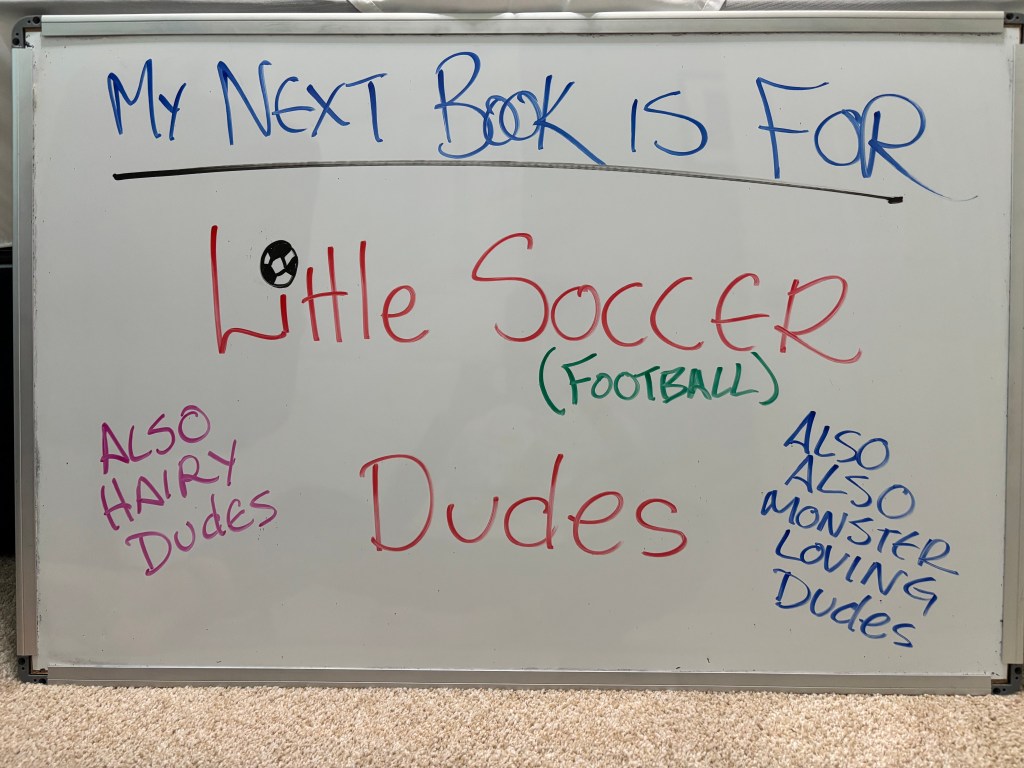 My NEXT BOOK IS FOR
Little SOCCER
(FOOTBALL)
Dudes
ALSO
HAIRY
DudES
ALSO
ALSO
MONSTER
LOVING
Dudes